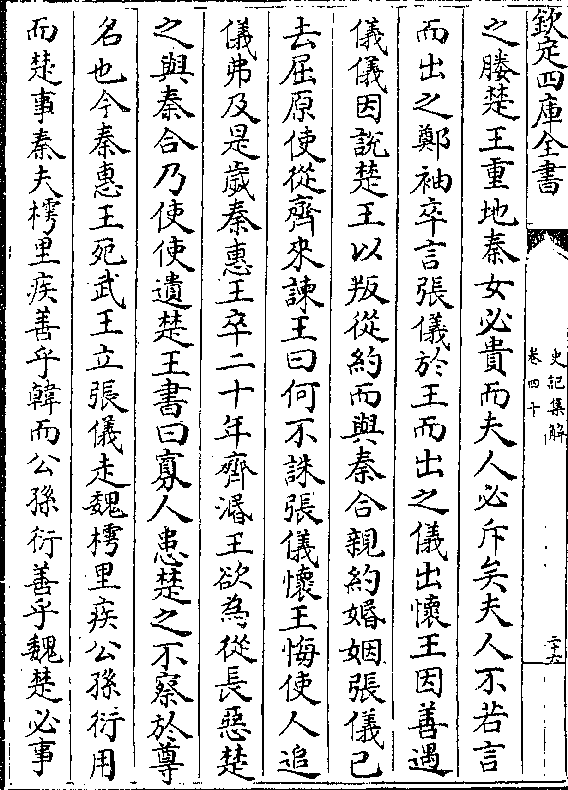 欽定四庫全書
史記集解
卷四十
二十六
之媵楚王重地秦女必貴而夫人必斥矣夫人不若言
而出之鄭袖卒言張儀於王而出之儀出懷王因善遇
儀儀因說楚王以叛從約而與秦合親約婚姻張儀已
去屈原使從齊來諫王曰何不誅張儀懷王悔使人追
儀弗及是歲秦惠王卒二十年齊湣王欲為從長惡楚
之與秦合乃使使遺楚王書曰寡人患楚之不察於尊
名也今秦惠王死武王立張儀走魏樗里疾公孫衍用
而楚事秦夫樗里疾善乎韓而公孫衍善乎魏楚必事